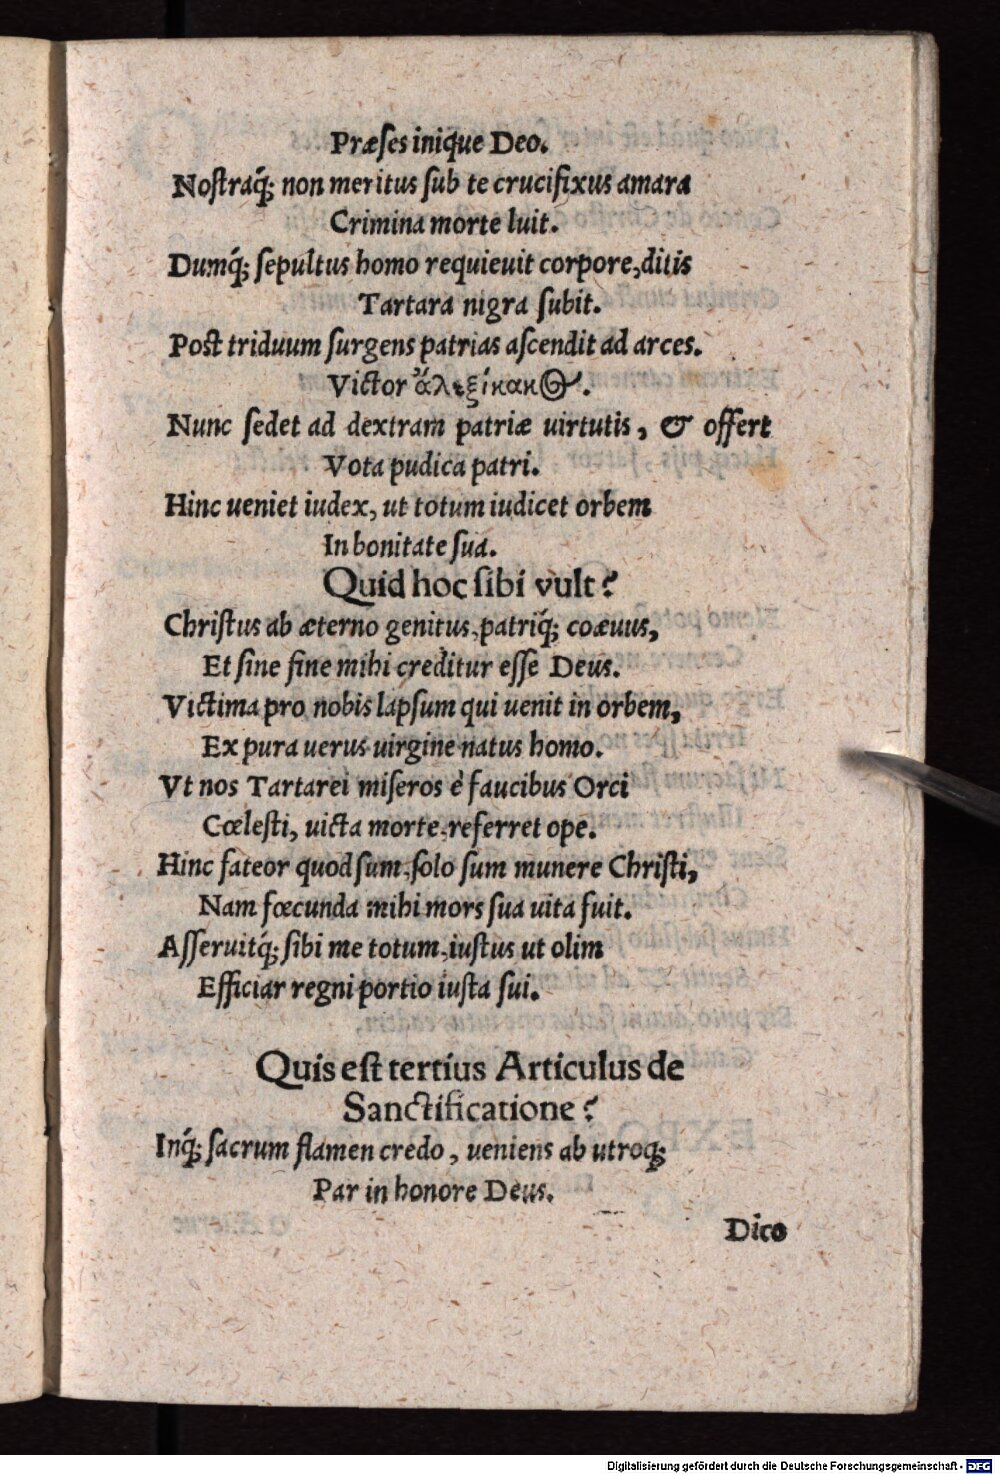 Præſes inique Deo.
Noſtraq́; non meritus ſub te crucifixus amara
Crimina morte luit.
Dumq́; ſepultus homo requieuit corpore, ditis
Tartara nigra ſubit.
Post triduum ſurgens patrias aſcendit ad arces.
Victor ἀλεξίκακος.
Nunc ſedet ad dextram patriæ uirtutis, & offert
Vota pudica patri.
Hinc ueniet iudex, ut totum iudicet orbem
In bonitate ſua.
Quid hoc ſibi vult?
Chriſtus ab æterno genitus, patriq́; coæuus,
Et ſine fine mihi creditur eſſe Deus.
Victima pro nobis lapſum qui uenit in orbem,
Ex pura uerus uirgine natus homo.
Vt nos Tartarei miſeros è faucibus Orci
Cœleſti, uicta morte, referret ope.
Hinc fateor quod ſum, ſolo ſum munere Chriſti,
Nam fœcunda mihi mors ſua uita fuit.
Aſſeruitq́; ſibi me totum, iuſtus ut olim
Efficiar regni portio iuſta ſui.
Quis eſt tertius Articulus de
Sanctificatione?
Inq́; ſacrum flamen credo, ueniens ab utroq;
Par in honore Deus.
Dico
Digitalisierung gefördert durch die Deutsche Forschungsgemeinschaft - DFG